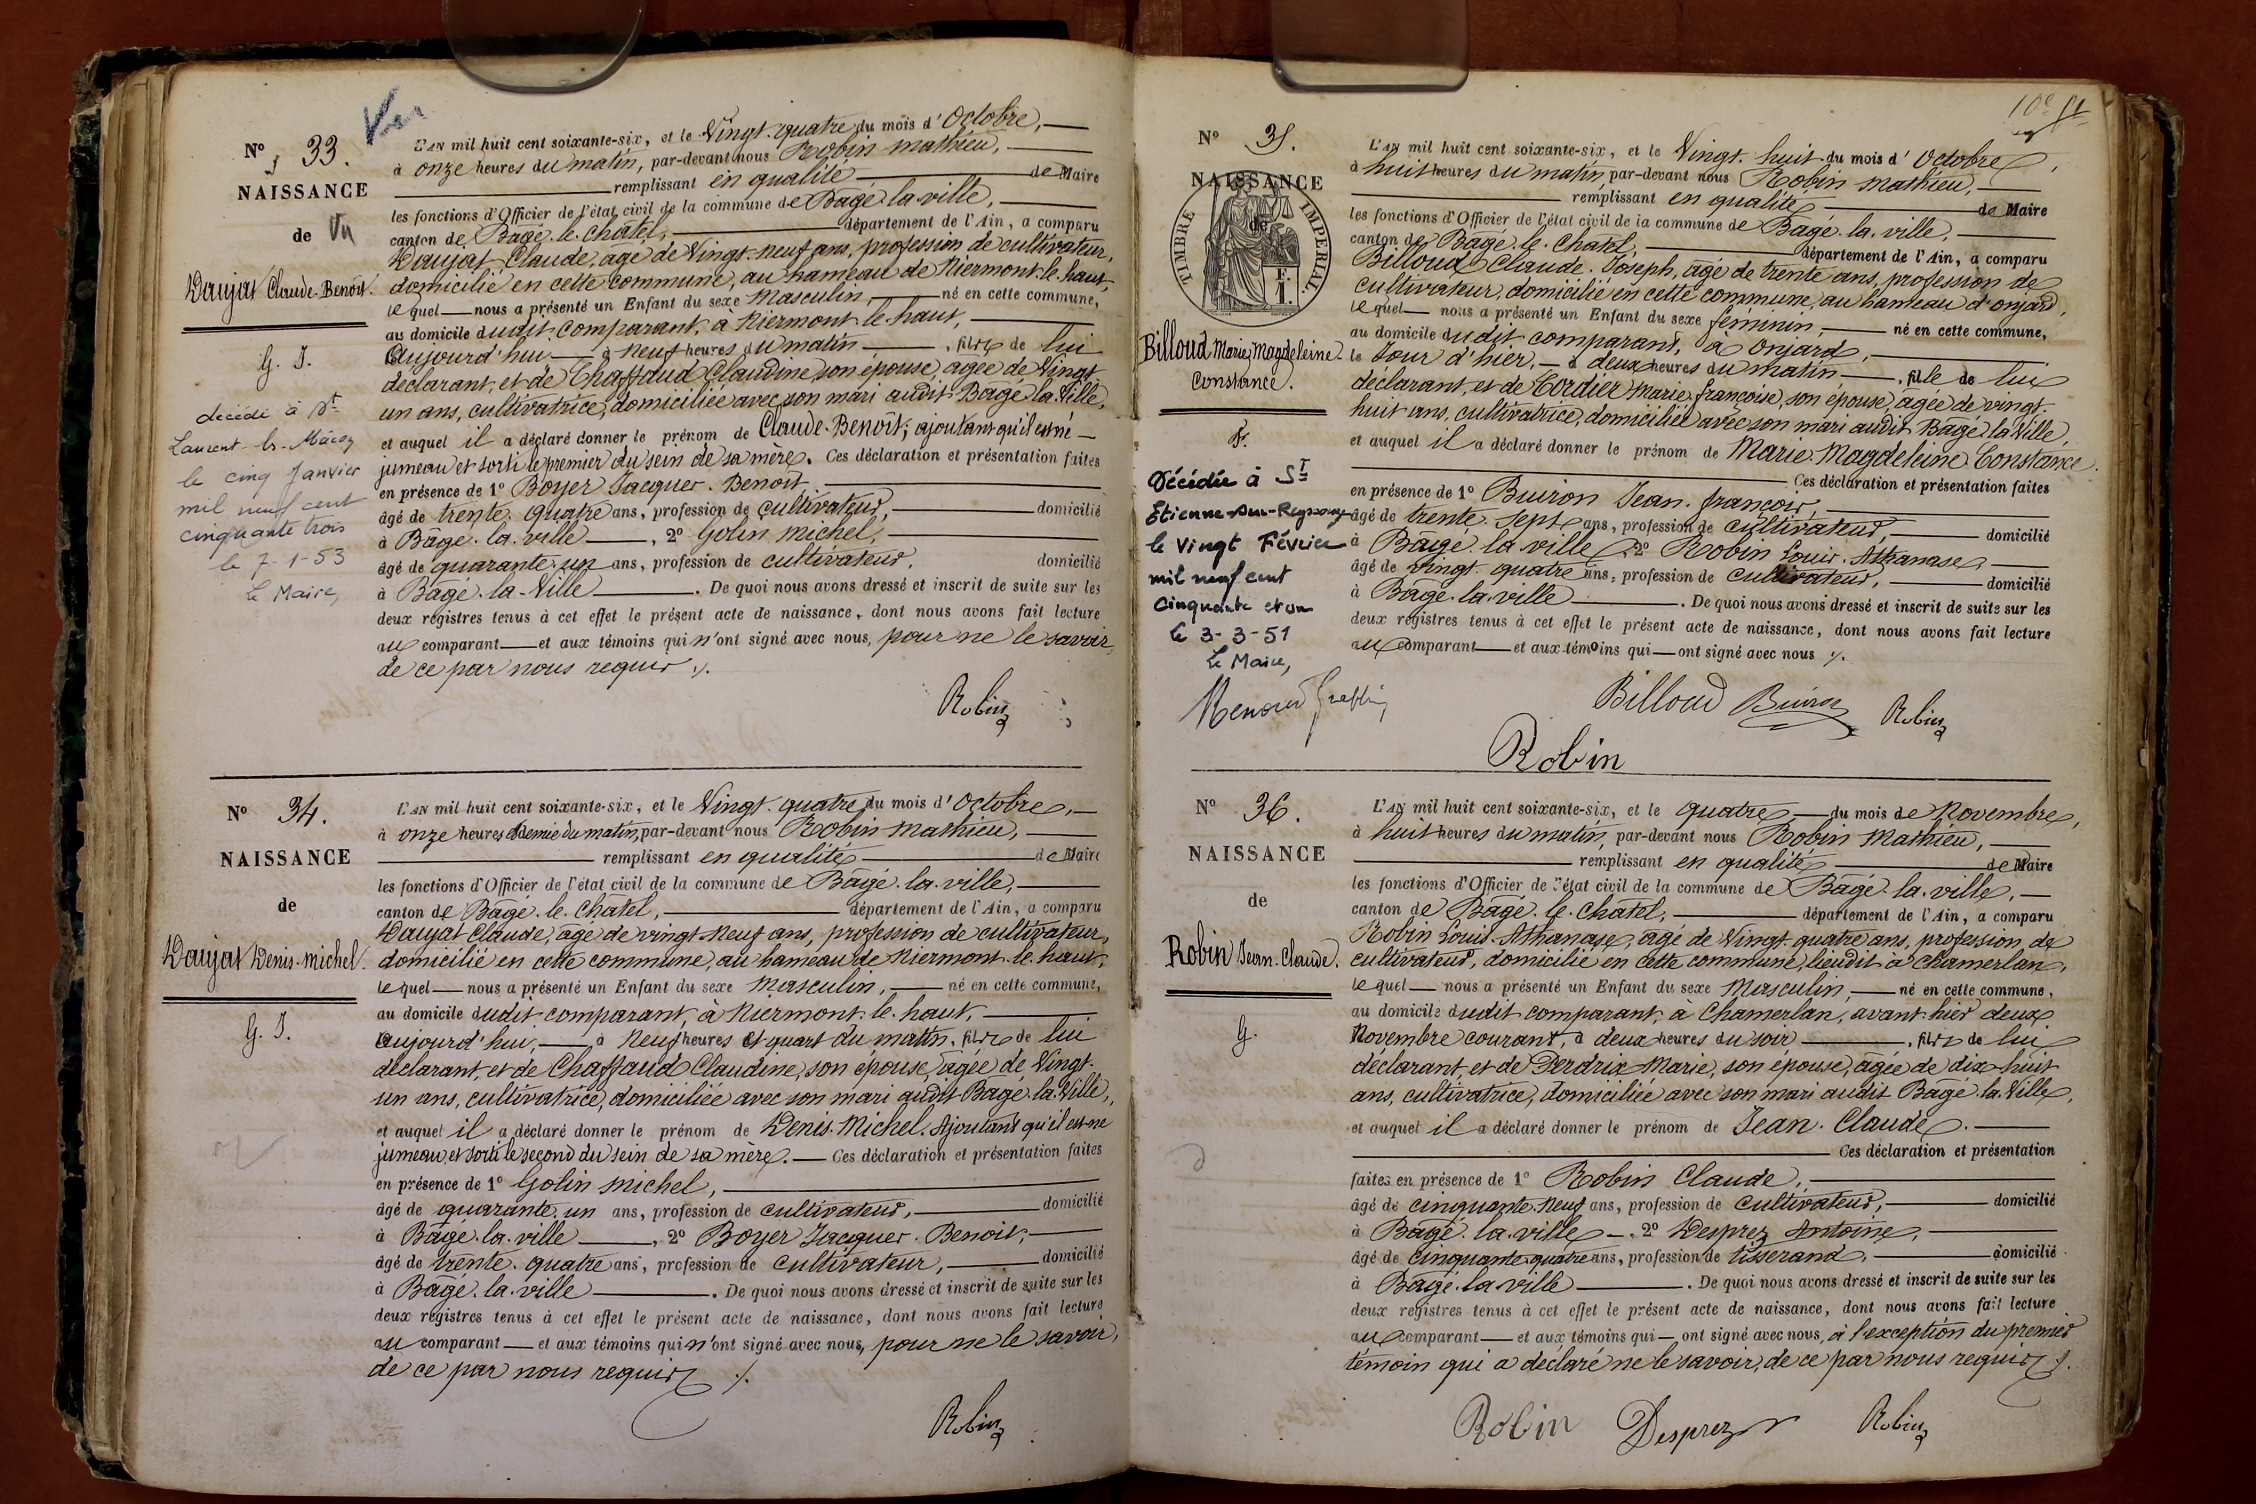 Vu
N° 33.
NAISSANCE
de Vu
Daujat Claude-Benoît.
G. J.
décédé à St
Laurent-ls-Mâcon
le cinq Janvier
mil neuf cent
cinquante trois
le 7-1-53
Le Maire,
L'AN mil huit cent soixante-six, et le Vingt-quatre du mois d'Octobre,
à onze heures du matin, par-devant nous Robin Mathieu,
remplissant en qualité de Maire
les fonctions d'Officier de l'état civil de la commune de Bagé-la-ville,
canton de Bagé-le-Chatel, département de l'Ain, a comparu
Daujat Claude, agé de Vingt-neuf ans, profession de cultivateur,
domicilié en cette commune, au hameau de Niermont-le-haut,
lequel nous a présenté un Enfant du sexe Masculin, né en cette commune,
au domicile dudit comparant, à Niermont-le-haut,
Aujourd'hui à neuf heures du matin, fils de lui
déclarant, et de Chaffaud Claudine son épouse, agée de Vingt
un ans, cultivatrice, domiciliée avec son mari audit Bagé-la-Ville,
et auquel il a déclaré donner le prénom de Claude-Benoît; ajoutant qu'il est né
jumeau et sorti le premier du sein de sa mère. Ces déclaration et présentation faites
en présence de 1° Boyer Jacques-Benoît,
âgé de trente-quatre ans, profession de cultivateur, domicilié
à Bagé-la-ville, 2° Golin Michel,
âgé de quarante-un ans, profession de cultivateur, domicilié
à Bagé-la-Ville. De quoi nous avons dressé et inscrit de suite sur les
deux registres tenus à cet effet le présent acte de naissance, dont nous avons fait lecture
au comparant et aux témoins qui n'ont signé avec nous, pour ne le savoir,
de ce par nous requis ./.
Robin
N° 34.
NAISSANCE
de
Daujat Denis-Michel.
G. J.
L'AN mil huit cent soixante-six, et le Vingt-quatre du mois d'Octobre,
à onze heures & demie du matin, par-devant nous Robin Mathieu,
remplissant en qualité de Maire
les fonctions d'Officier de l'état civil de la commune de Bagé-la-ville,
canton de Bagé-le-Chatel, département de l'Ain, a comparu
Daujat Claude, agé de vingt-neuf ans, profession de cultivateur,
domicilié en cette commune, au hameau de Niermont-le-haut,
lequel nous a présenté un Enfant du sexe Masculin, né en cette commune,
au domicile dudit comparant, à Niermont-le-haut,
aujourd'hui, à Neuf heures et quart du matin, fils de lui
déclarant, et de Chaffaud Claudine, son épouse, agée de Vingt-
un ans, cultivatrice, domiciliée avec son mari audit Bagé-la-Ville,
et auquel il a déclaré donner le prénom de Denis-Michel. Ajoutant qu'il est né
jumeau, et sorti le second du sein de sa mère. Ces déclaration et présentation faites
en présence de 1° Golin Michel,
âgé de quarante-un ans, profession de cultivateur, domicilié
à Bagé-la-ville, 2° Boyer Jacques-Benoit,
âgé de trente-quatre ans, profession de cultivateur, domicilié
à Bagé-la-ville. De quoi nous avons dressé et inscrit de suite sur les
deux registres tenus à cet effet le présent acte de naissance, dont nous avons fait lecture
au comparant et aux témoins qui n'ont signé avec nous, pour ne le savoir,
de ce par nous requis ./.
Robin
N° 35.
NAISSANCE
de
TIMBRE IMPERIAL
Billoud Marie Magdeleine-
Constance.
F.
Décédée à St
Etienne-sur-Reyssouze
le vingt Février
mil neuf cent
cinquante et un
le 3-3-51
Le Maire,
L'AN mil huit cent soixante-six, et le Vingt-huit du mois d'Octobre,
à huit heures du matin, par-devant nous Robin Mathieu,
remplissant en qualité de Maire
les fonctions d'Officier de l'état civil de la commune de Bagé-la-ville,
canton de Bagé-le-Chatel, département de l'Ain, a comparu
Billoud Claude-Joseph, agé de trente ans, profession de
cultivateur, domicilié en cette commune, au hameau d'Onjard,
lequel nous a présenté un Enfant du sexe féminin, né en cette commune,
au domicile dudit comparant, à Onjard,
le Jour d'hier, à deux heures du matin, fille de lui
déclarant, et de Cordier Marie françoise, son épouse, agée de vingt-
huit ans, cultivatrice, domiciliée avec son mari audit Bagé-la-Ville,
et auquel il a déclaré donner le prénom de Marie-Magdeleine-Constance.
Ces déclaration et présentation faites
en présence de 1° Buiron Jean-françois,
âgé de trente-sept ans, profession de cultivateur, domicilié
à Bagé-la-ville, 2° Robin Louis-Athanase,
âgé de vingt-quatre ans, profession de Cultivateur, domicilié
à Bagé-la-ville. De quoi nous avons dressé et inscrit de suite sur les
deux registres tenus à cet effet le présent acte de naissance, dont nous avons fait lecture
au comparant et aux témoins qui ont signé avec nous ./.
Billoud Buiron Robin
Robin
N° 36.
NAISSANCE
de
Robin Jean-Claude.
G.
L'AN mil huit cent soixante-six, et le quatre du mois de Novembre,
à huit heures du matin, par-devant nous Robin Mathieu,
remplissant en qualité de Maire
les fonctions d'Officier de l'état civil de la commune de Bagé-la-ville,
canton de Bagé-le-Chatel, département de l'Ain, a comparu
Robin Louis-Athanase, agé de Vingt-quatre ans, profession de
cultivateur, domicilié en cette commune, lieudit à Chamerlan,
lequel nous a présenté un Enfant du sexe Masculin, né en cette commune,
au domicile dudit comparant, à Chamerlan, avant-hier deux
Novembre courant, à deux heures du soir, fils de lui
déclarant, et de Perdrix Marie, son épouse, agée de dix-huit
ans, cultivatrice, domiciliée avec son mari audit Bagé-la-Ville,
et auquel il a déclaré donner le prénom de Jean-Claude.
Ces déclaration et présentation
faites en présence de 1° Robin Claude,
âgé de cinquante-neuf ans, profession de cultivateur, domicilié
à Bagé-la-ville, 2° Desprez Antoine,
âgé de cinquante-quatre ans, profession de tisserand, domicilié
à Bagé-la-ville. De quoi nous avons dressé et inscrit de suite sur les
deux registres tenus à cet effet le présent acte de naissance, dont nous avons fait lecture
au comparant et aux témoins qui ont signé avec nous, à l'exception du premier
témoin qui a déclaré ne le savoir, de ce par nous requis ./.
Robin Desprez Robin